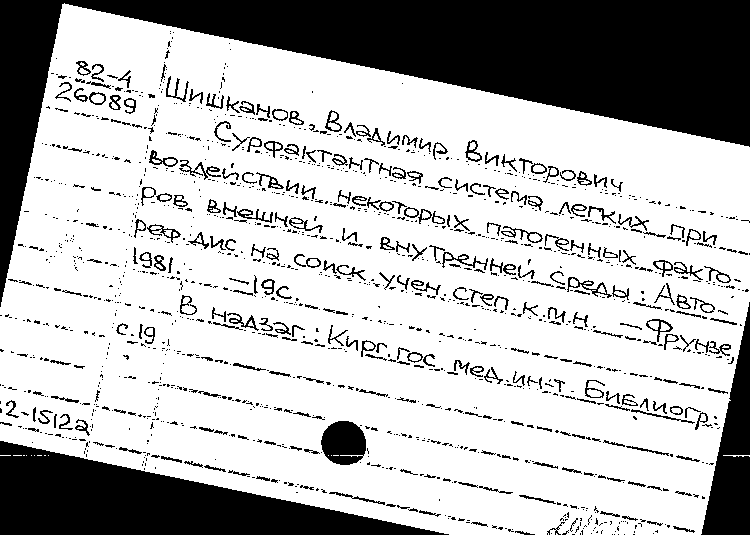 82-4
26089
Шишканов, Владимир Викторович
Сурфактантная система легких при
воздействии некоторых патогенных факто-
ров внешней и внутренней среды: Авто-
реф дис на соиск учен степ к.м.н. — Фрунзе,
1981. — 19с.
В надзаг.: Кирг. гос мед ин-т. Библиогр.:
с.19.
82-15122